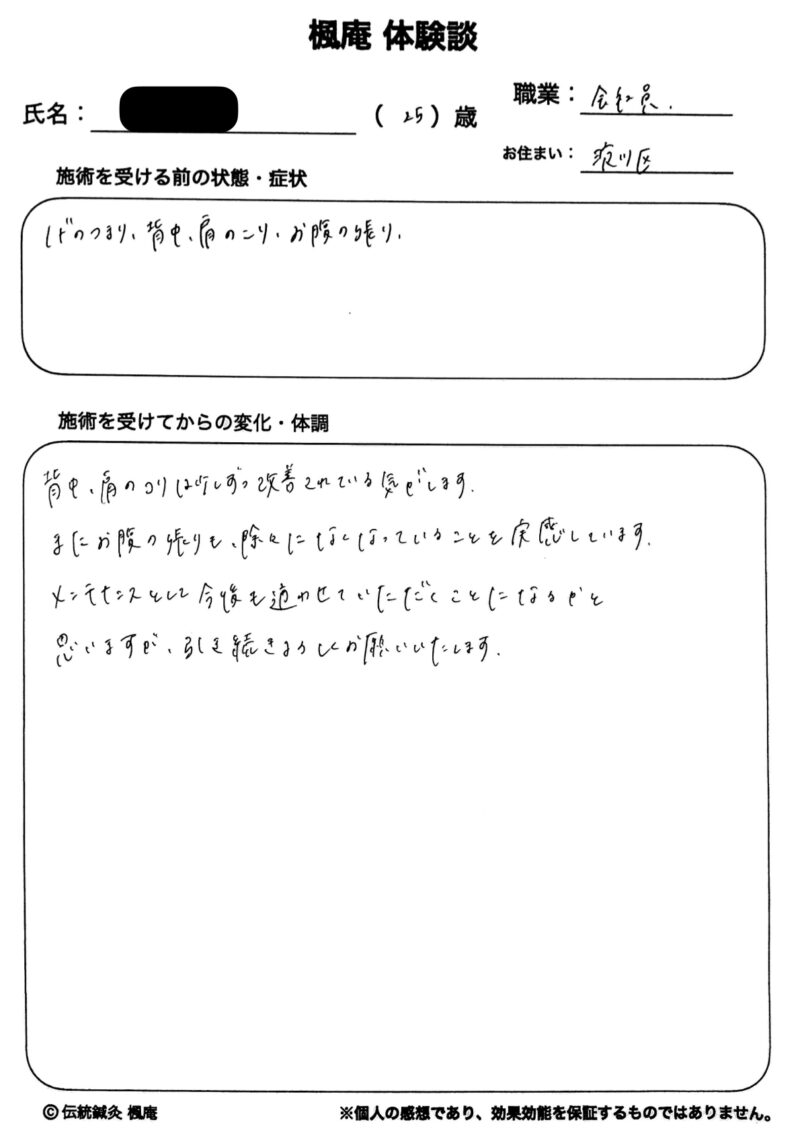 楓庵 体験談
氏名： （ 25 ）歳
職業： 会社員.
お住まい： 荒川区
施術を受ける前の状態・症状
のつまり、背中、肩のこり、お腹の張り.
施術を受けてからの変化・体調
背中、肩のコリは少しずつ改善されている気がします.
またお腹の張りも、除々になくなっていることを実感しています.
メンテナンスとして今後も通わせていただくことになるかと
思いますが、引き続きよろしくお願いいたします.
©伝統鍼灸 楓庵
※個人の感想であり、効果効能を保証するものではありません。